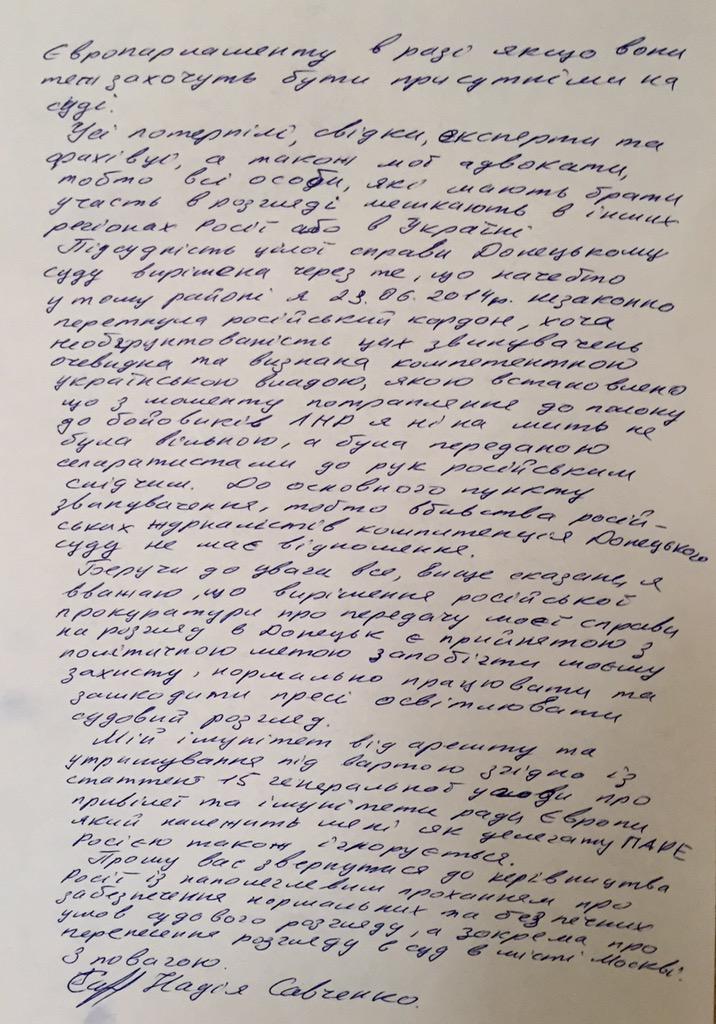 Європарламенту в разі якщо вони
теж захочуть бути присутніми на
суді.
Усі потерпілі, свідки, експерти та
фахівці, а також мої адвокати,
тобто всі особи, які мають брати
участь в розгляді мешкають в інших
регіонах Росії або в Україні
Підсудність цілої справи Донецькому
суду вирішена через те, що начебто
у тому районі я 23.06.2014р. незаконно
перетнула російський кордон, хоча
необгрунтованість цих звинувачень
очевидна та визнана компетентною
українською владою, якою встановлено
що з моменту потрапляння до полону
до бойовиків ЛНР я ні на мить не
була вільною, а була переданою
сепаратистами до рук російським
слідчим. До основного пункту
звинувачення, тобто вбивства росій-
ських журналістів компитенція Донецького
суду не має відношення.
Беручи до уваги все, вище сказане, я
вважаю, що вирішення російської
прокуратури про передачу моєї справи
на розгляд в Донецьк є прийнятою з
політичною метою запобігти моєму
захисту, нормально працювати та
зашкодити пресі освітлювати
судовий розгляд.
Мій імунітет від арешту та
утримування під вартою згідно із
статтею 15 генеральної угоди про
привілеї та імунітети ради Європи
який належить мені як делегату ПАРЕ
Росією також ігнорується.
Прошу вас звернутися до керівництва
Росії із наполегливим проханням про
забезпечення нормальних та безпечних
умов судового розгляду, а зокрема про
перенесення розгляду в суд в місті Москві.
З повагою.
Надія Савченко.